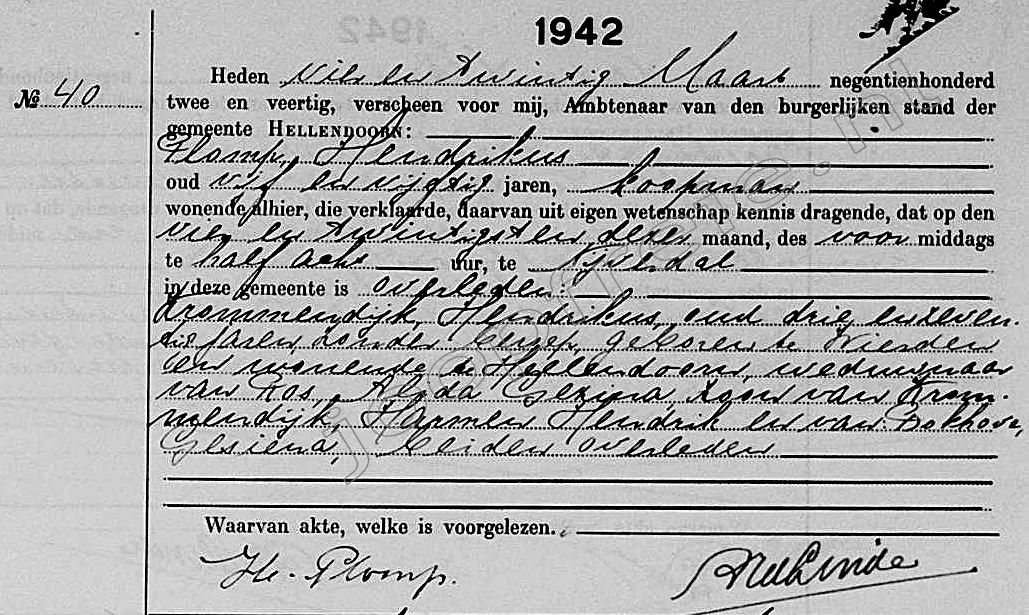 1942
№ 40
Heden vier en twintig Maart negentienhonderd
twee en veertig, verscheen voor mij, Ambtenaar van den burgerlijken stand der
gemeente HELLENDOORN:
Plomp, Hendrikus
oud vijf en vijftig jaren, koopman
wonende alhier, die verklaarde, daarvan uit eigen wetenschap kennis dragende, dat op den
vier en twintigsten dezer maand, des voor middags
te half acht uur, te Nijverdal
in deze gemeente is overleden:
Krommendijk, Hendrikus, oud drie en zeven-
tig jaren, zonder beroep, geboren te Wierden
en wonende te Hellendoorn, weduwnaar
van Ros, Aleida Gezina, zoon van Krom-
mendijk, Harmen Hendrik en van Bokhove,
Gesiena, beiden overleden
Waarvan akte, welke is voorgelezen.
He. Plomp.